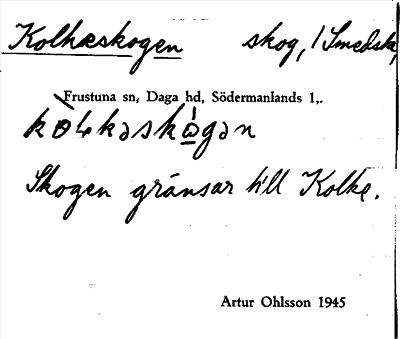 Kolkeskogen skog, / Smedsta,
Frustuna sn, Daga hd, Södermanlands l,.
Skogen gränsar till Kolke.
Artur Ohlsson 1945